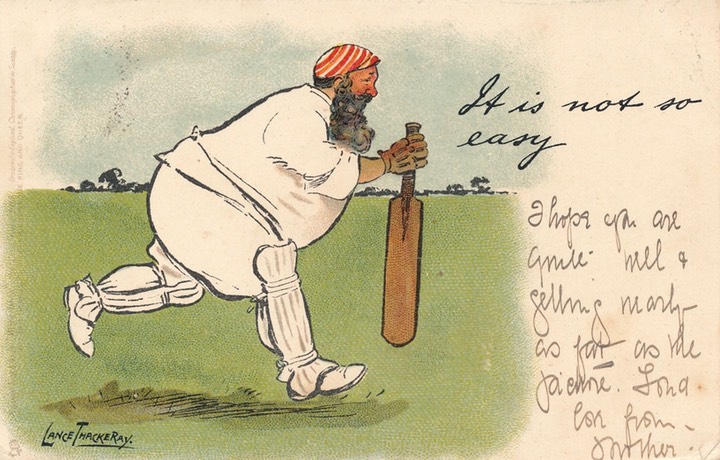 It is not so
easy
I hope you are
quite well &
getting nearly
as fat as the
picture. Fond
love from
Mother.
LANCE THACKERAY.